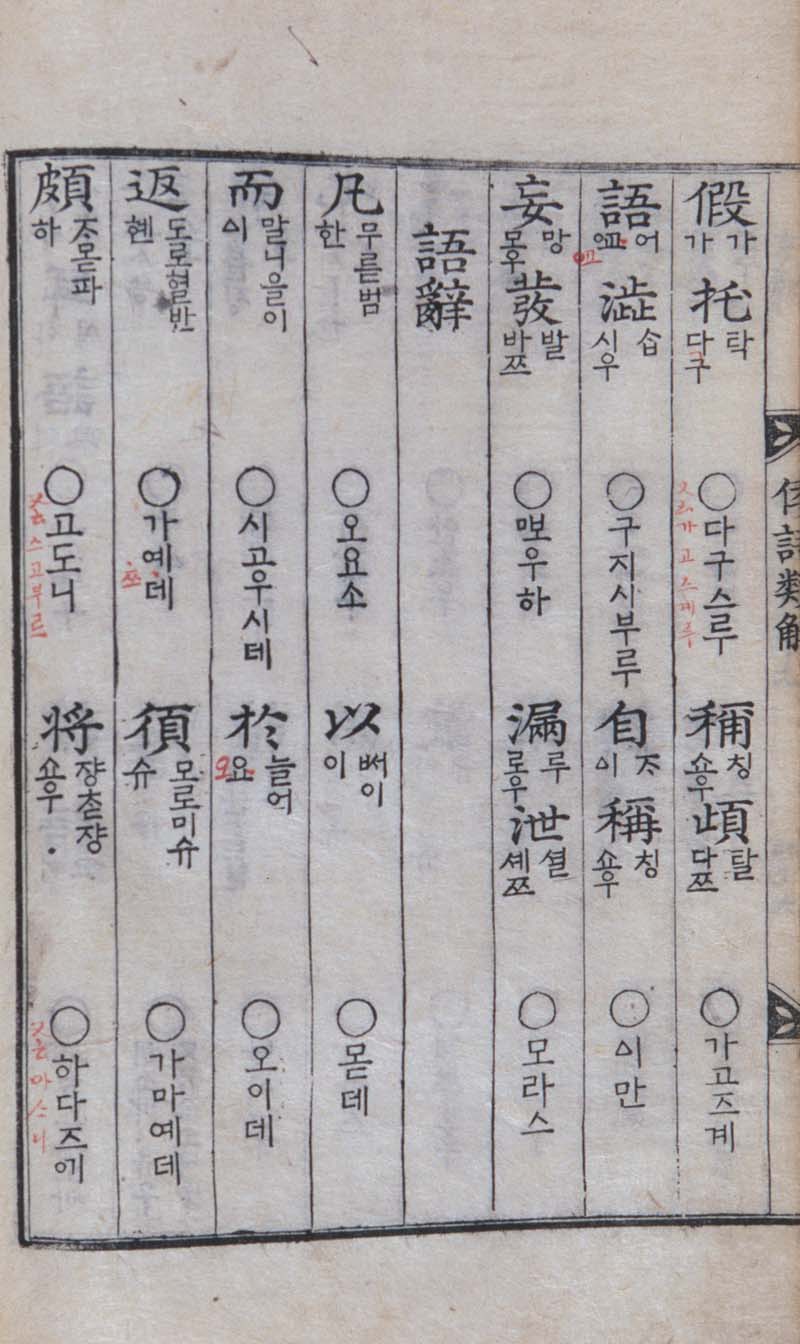 倭語類解
假 가 가 托 탁 다구 ○다구스루 稱 칭 쇼우 頉 탈 다쯔 ○가고즈계
語 어 澁 습 시우 ○구지시부루 自 ᄌᆞ ᅀᅵ 稱 칭 쇼우 ○ᅀᅵ만
妄 망 모우 發 발 바쯔 ○ᄲᅩ우하 漏 루 로우 泄 셜 셰쯔 ○모라스
語辭
凡 무릇범 한 ○오요소 以 ᄡᅥ이 이 ○몯데
而 말니을이 ᅀᅵ ○시고우시데 於 늘어 요 오 ○오이데
返 도로혈반 혠 ○가예데 須 모로미슈 슈 ○가마예데
頗 ᄌᆞ몯파 하 ○고도니 又云스고부르 將 쟝ᄎᆞᆺ쟝 쇼우 ○하다즈에